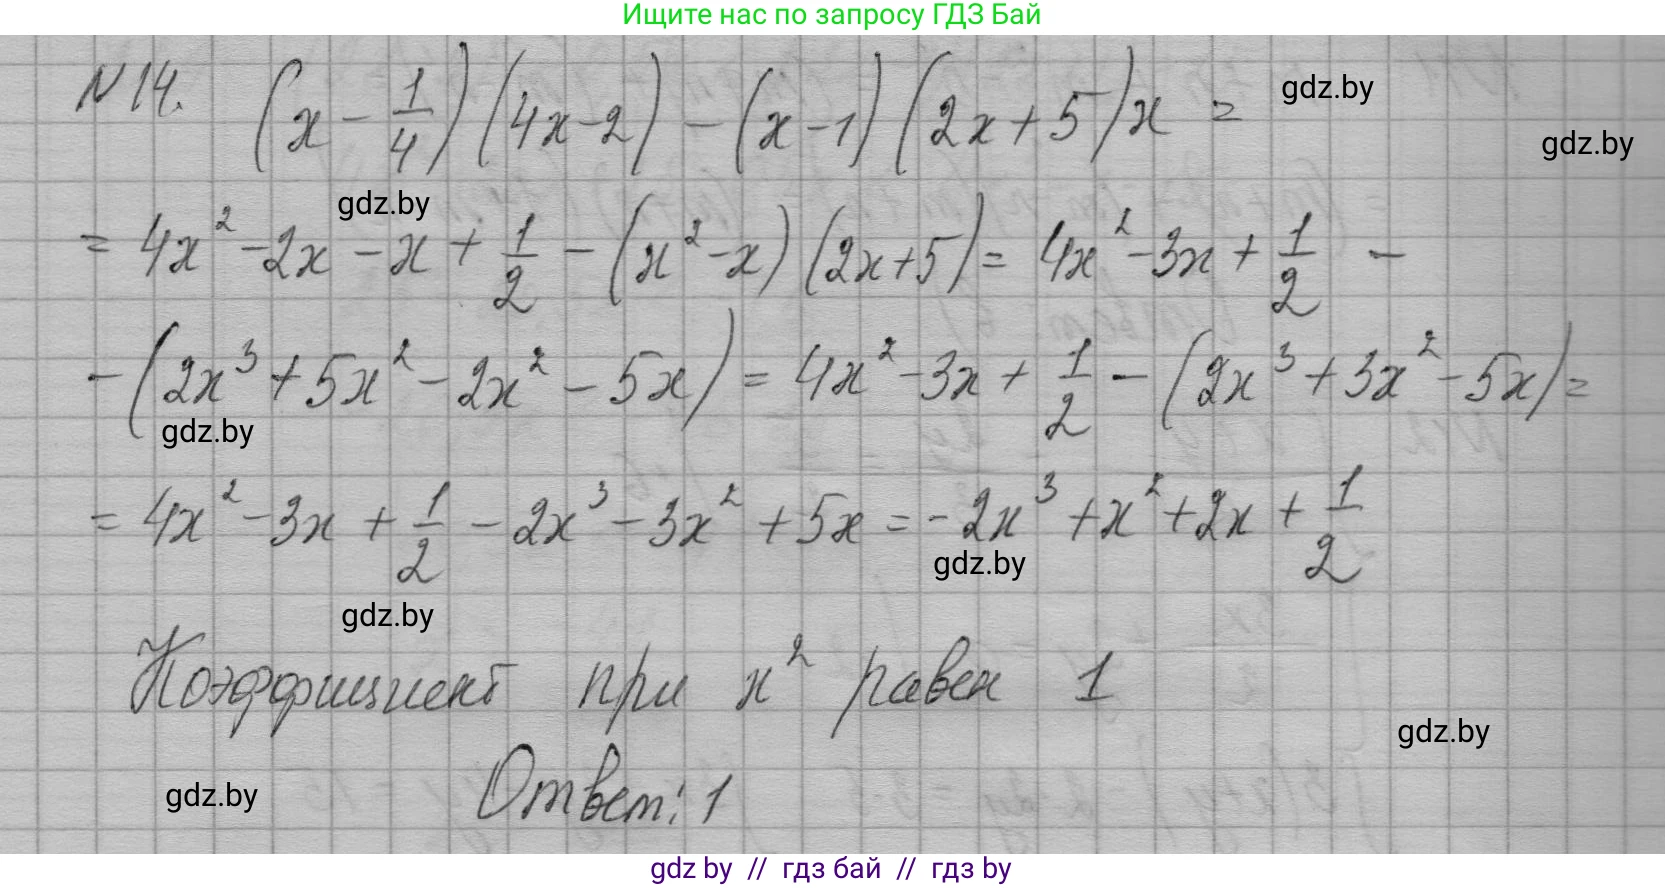 Ищите нас по запросу ГДЗ Бай
N 14. (x - 1/4)(4x-2) - (x-1)(2x+5)x =
gdz.by
gdz.by
gdz.by
= 4x² - 2x - x + 1/2 - (x² - x)(2x+5) = 4x² - 3x + 1/2 -
- (2x³ + 5x² - 2x² - 5x) = 4x² - 3x + 1/2 - (2x³ + 3x² - 5x) =
gdz.by
= 4x² - 3x + 1/2 - 2x³ - 3x² + 5x = -2x³ + x² + 2x + 1/2
gdz.by
gdz.by
Коэффициент при x² равен 1
gdz.by
gdz.by
Ответ: 1
gdz by // гдз бай // гдз by